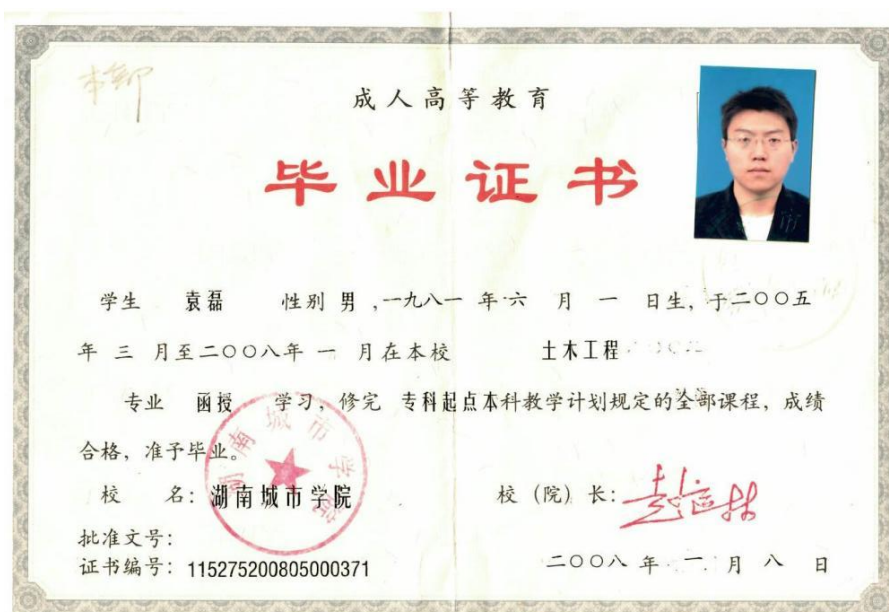 本部
成人高等教育
毕业证书
学生 袁磊 性别 男 ,一九八一 年 六 月 一 日生, 于二〇〇五
年 三 月至二〇〇八年 一 月在本校 土木工程
专业 函授 学习, 修完 专科起点本科教学计划规定的全部课程, 成绩
合格, 准予毕业。
湖南城市学院
校 名: 湖南城市学院
校 (院) 长:
批准文号:
证书编号: 115275200805000371
二〇〇八 年 一 月 八 日